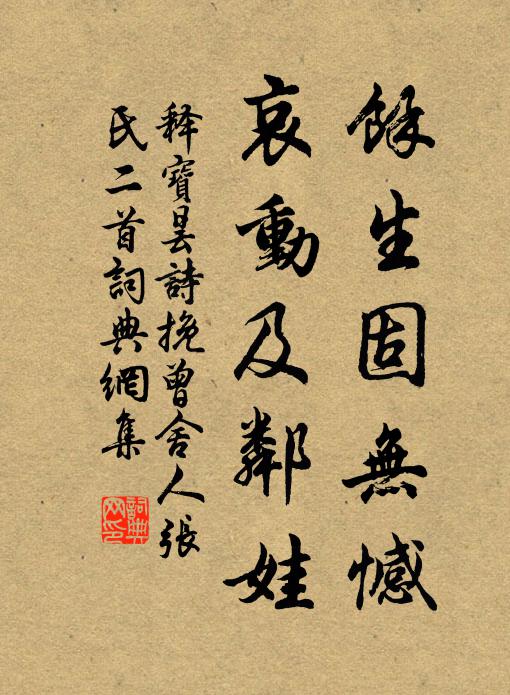 餘生固無憾
哀動及鄰娃
釋寶曇詩挽曾舍人張
氏二首詞典網集
詞典
网印